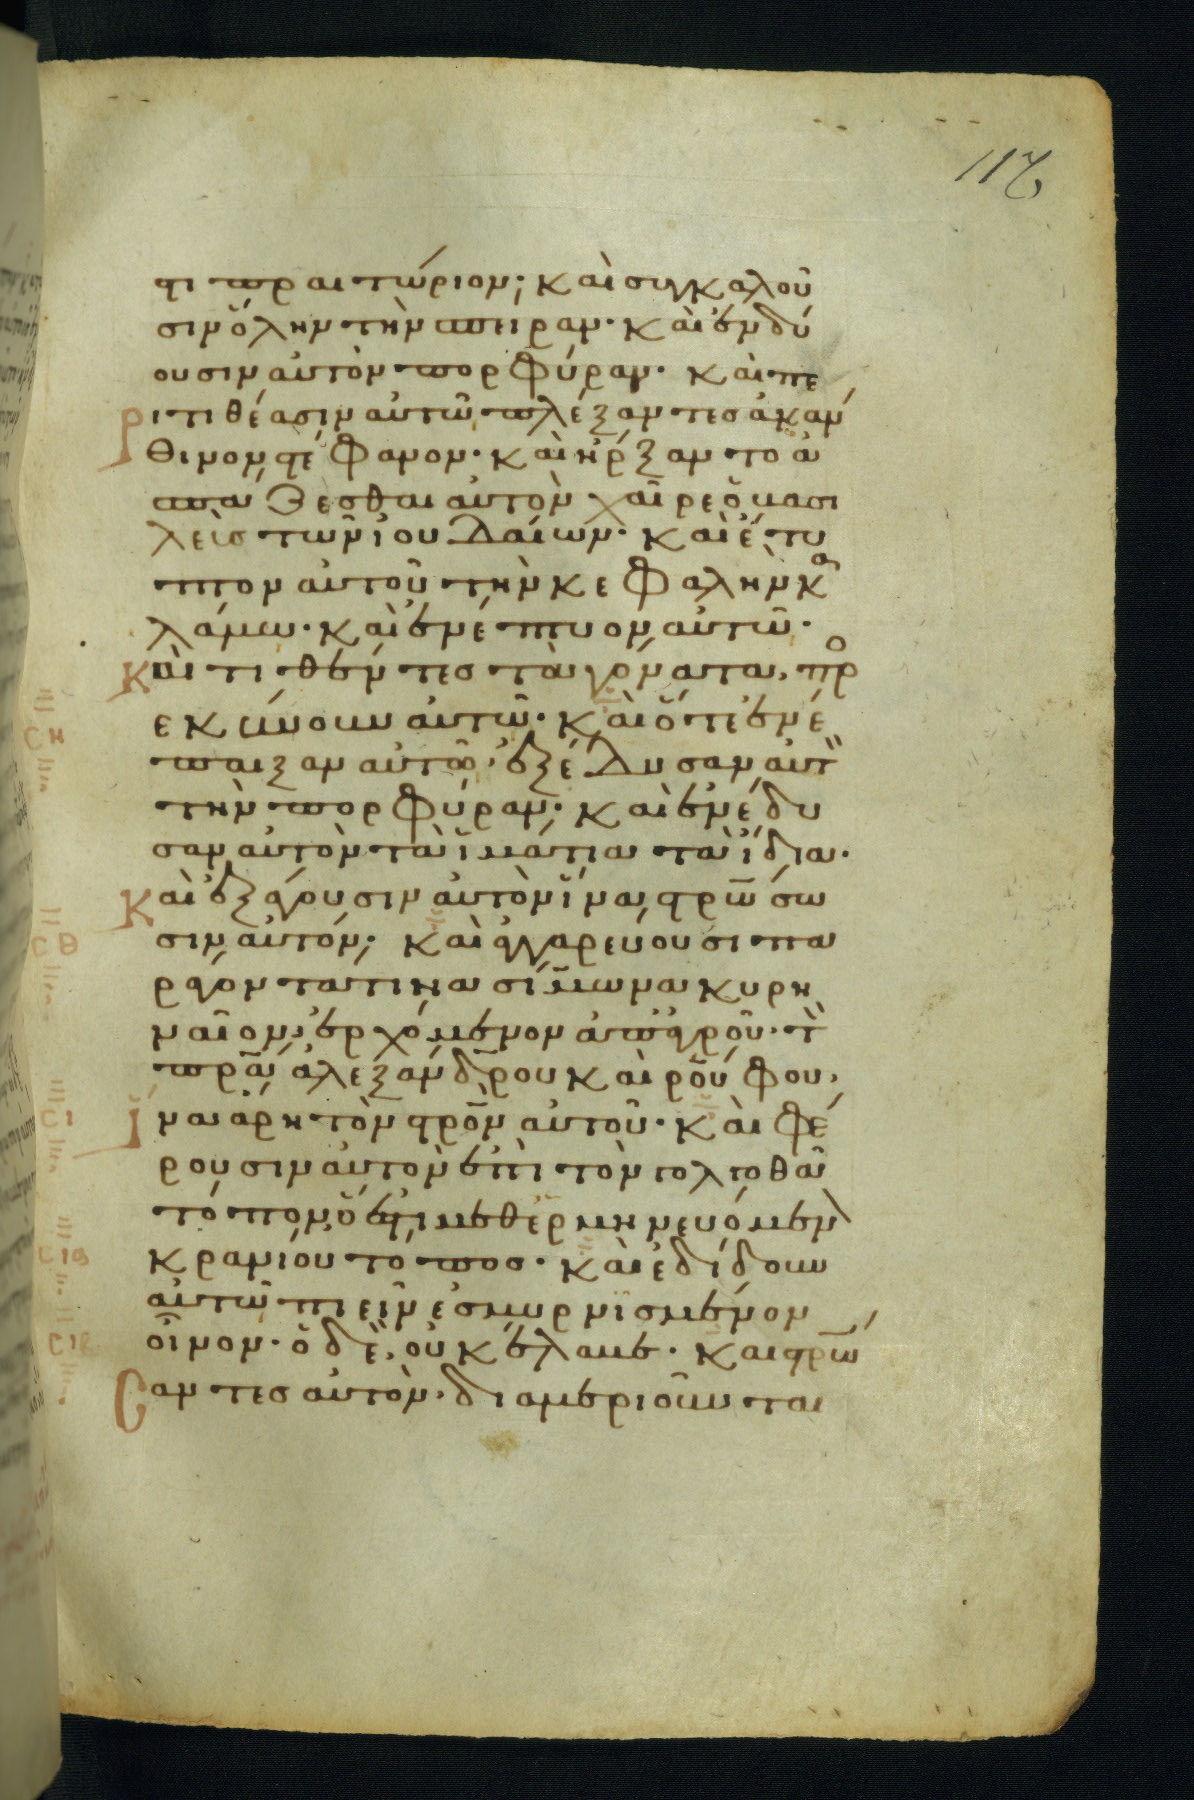 117
στι πραιτώριον; καὶ συγκαλοῦ
σιν ὅλην τὴν σπειραν· καὶ ἐνδύ
ουσιν αὐτὸν πορφύραν· καὶ πε
ριτιθέασιν αὐτῶ πλέξαντες ἀκάν
θινον στέφανον· καὶ ἤρξαντο ἀ
σπάζεσθαι αὐτὸν χαῖρε ὁ βασι
λεὺς τῶν ἰουδαίων· καὶ ἔτυ
πτον αὐτοῦ τὴν κεφαλὴν κα
λάμω· καὶ ἐνέπτυον αὐτῶ·
Καὶ τιθέντες τὰ γόνατα, προ
εκύνουν αὐτῶ· καὶ ὅτε ἐνέ
παιξαν αὐτῶ, ἐξέδυσαν αὐτ
τὴν πορφύραν· καὶ ἐνέδυ
σαν αὐτὸν τὰ ἱμάτια τὰ ἴδια·
Καὶ ἐξάγουσιν αὐτὸν ἵνα στρώσω
σιν αὐτόν; καὶ ἀγγαρεύουσι πα
ράγοντα τινα σίμωνα κυρη
ναῖον, ἐρχόμενον ἀπ' ἀγροῦ· τὸ
πρα ἀλεξάνδρου καὶ ρούφου,
ἵνα αρη τὸν στρον αὐτοῦ· καὶ φέ
ρουσιν αὐτὸν ἐπὶ τὸν γολγοθᾶ
τόπον, ὅ ἐστι μεθερμηνευόμεν
κρανίου τόπος· καὶ ἐδίδουν
αὐτῶ πιεῖν ἐσμυρνισμένον
οἶνον· ὁ δὲ, οὐκ ἔλαβε· καὶ στρώ
Σαντες αὐτὸν· διαμεριοῦνται